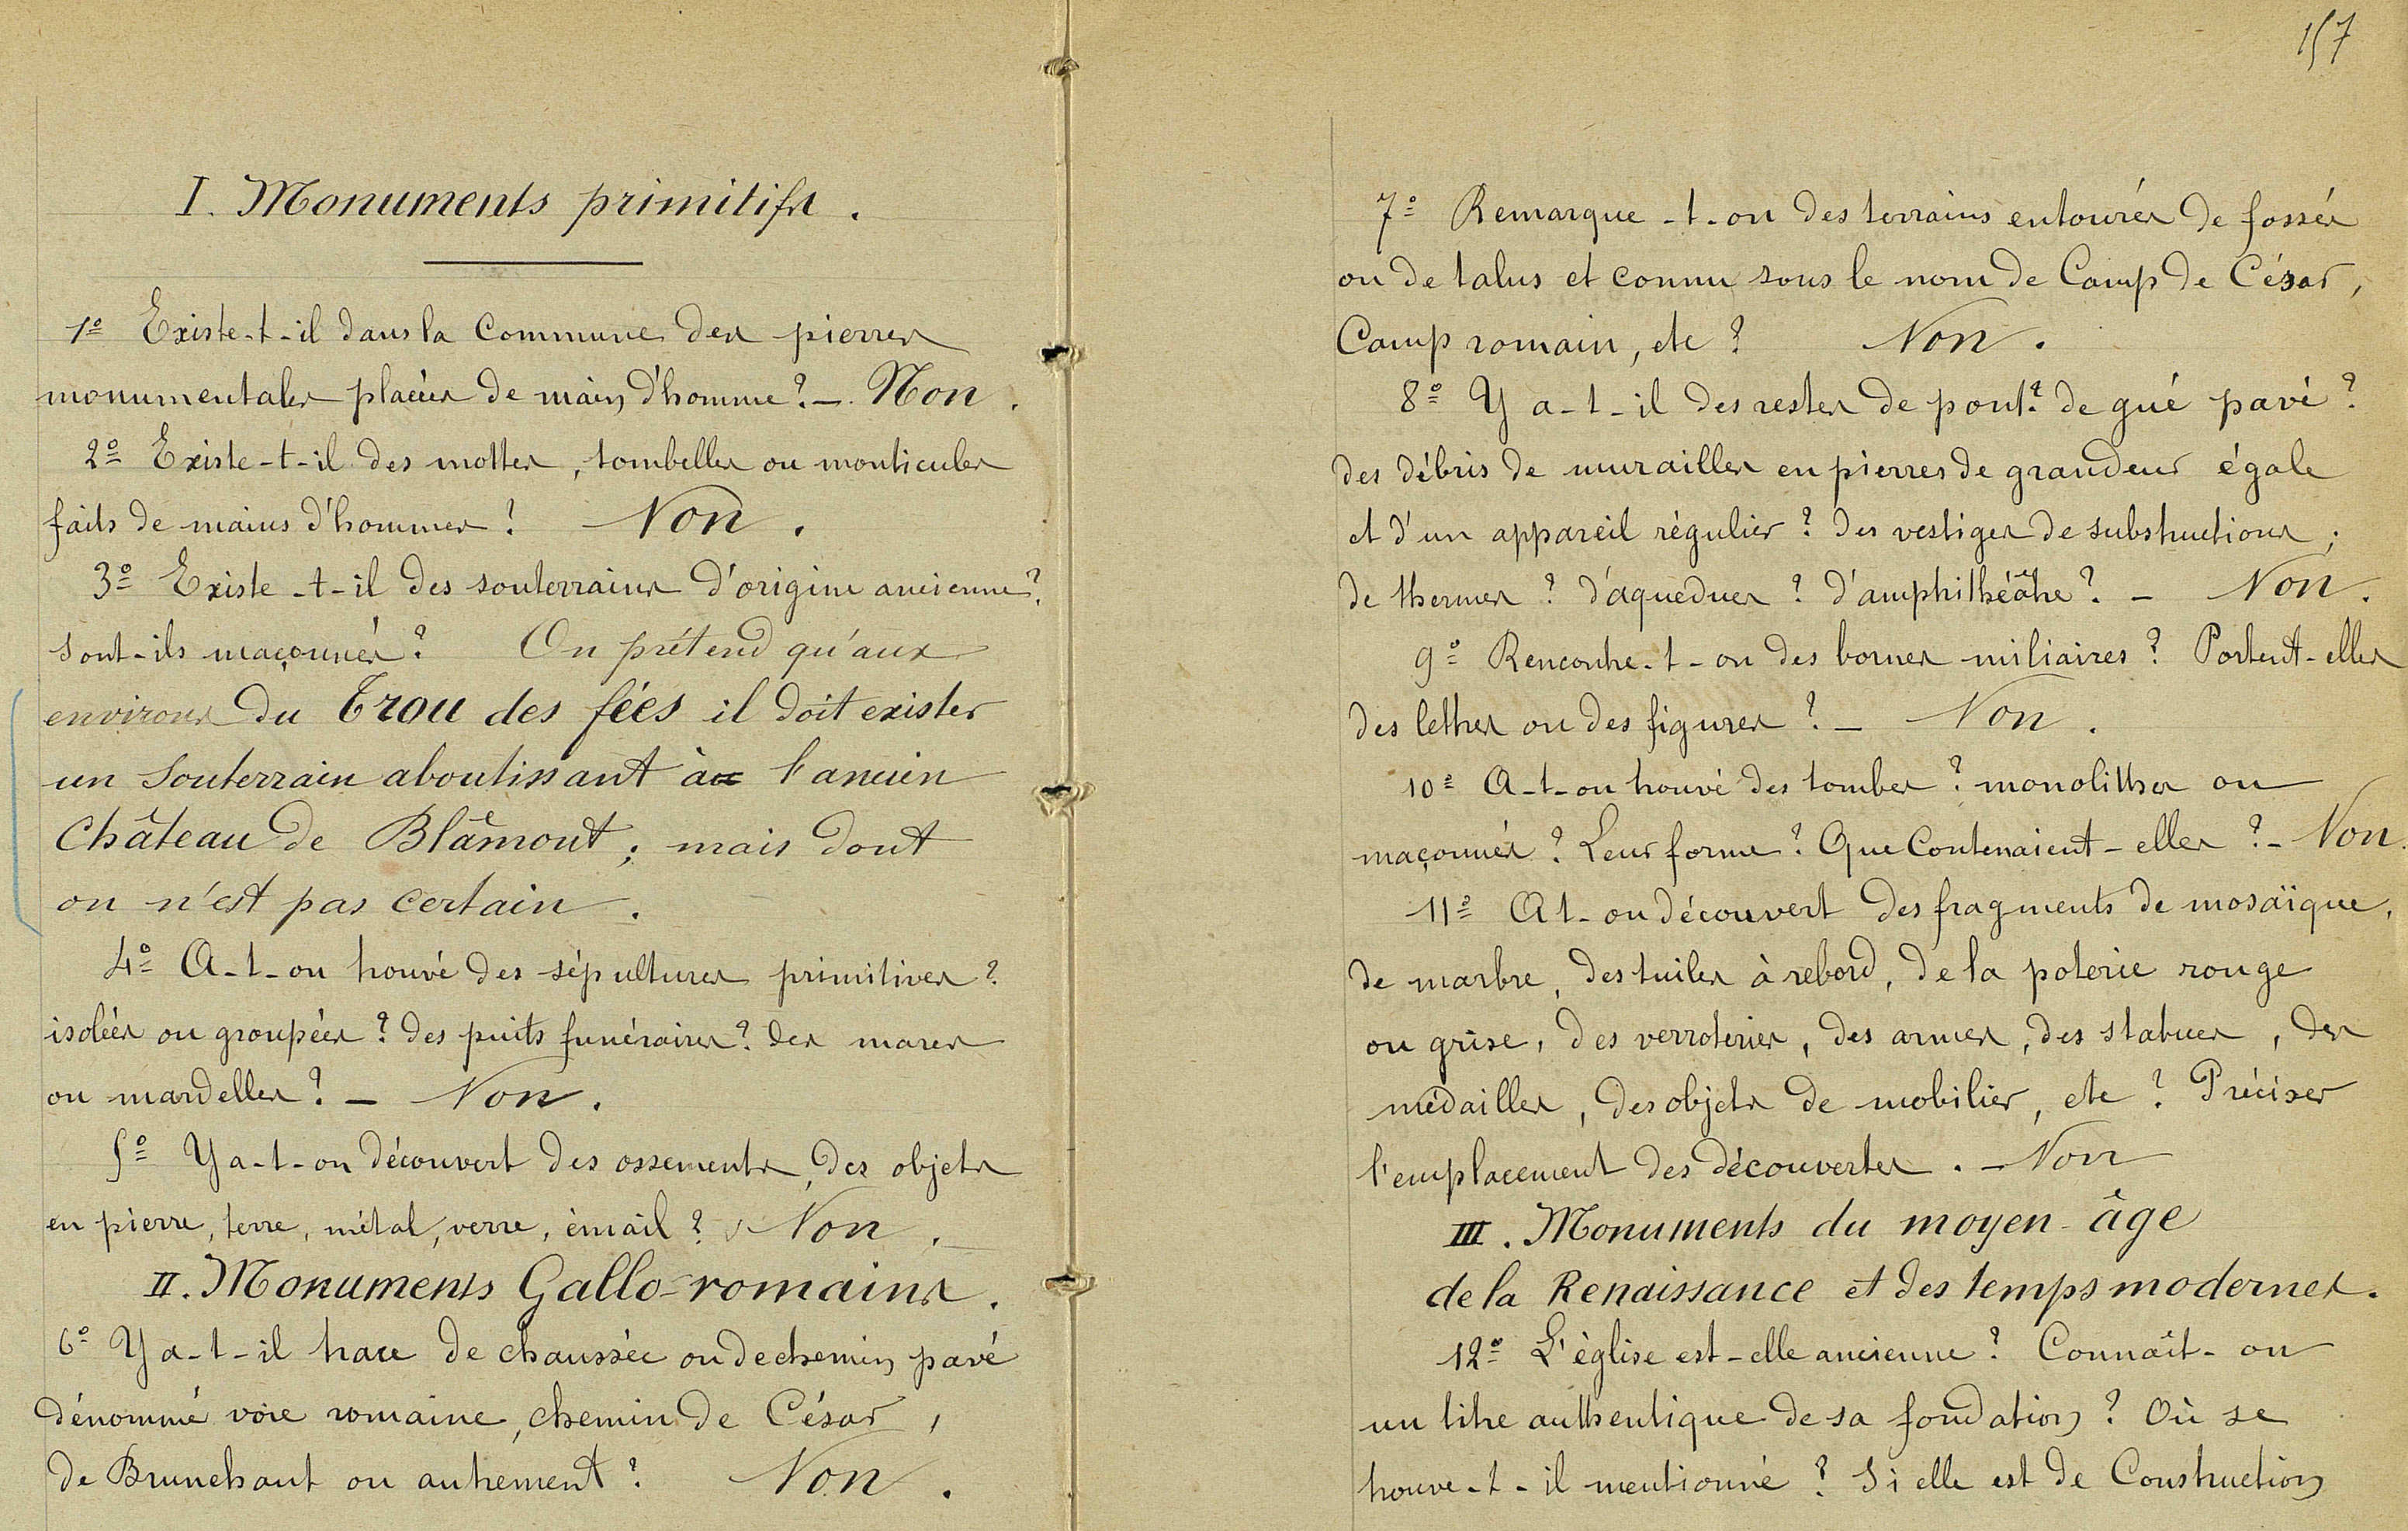 I. Monuments primitifs.
1º Existe-t-il dans la Commune des pierres
monumentales placées de main d'homme? — Non.
2º Existe-t-il des mottes, tombelles ou monticules
faits de mains d'hommes? Non.
3º Existe-t-il des souterrains d'origine ancienne?
Sont-ils maçonnés? On prétend qu'aux
environs du Trou des fées il doit exister
un Souterrain aboutissant à l'ancien
Château de Blâmont; mais dont
on n'est pas certain.
4º A-t-on trouvé des sépultures primitives?
isolées ou groupées? des puits funéraires? des mares
ou mardelles? — Non.
5º Y a-t-on découvert des ossements, des objets
en pierre, terre, métal, verre, émail? Non.
II. Monuments Gallo-romains.
6º Y a-t-il trace de chaussée ou de chemin pavé
dénommé voie romaine, chemin de César,
de Brunehaut ou autrement? Non.
157
7º Remarque-t-on des terrains entourés de fossés
ou de talus et connu sous le nom de Camp de César,
Camp romain, etc? Non.
8º Y a-t-il des restes de pont? de gué pavé?
des débris de murailles en pierres de grandeur égale
et d'un appareil régulier? des vestiges de substructions;
de thermes? d'aqueducs? d'amphithéâtre? — Non.
9º Rencontre-t-on des bornes miliaires? Portent-elles
des lettres ou des figures? — Non.
10º A-t-on trouvé des tombes? monolithes ou
maçonnés? Leur forme? Que Contenaient-elles? — Non.
11º A t-on découvert des fragments de mosaïque,
de marbre, des tuiles à rebord, de la poterie rouge
ou grise, des verroteries, des armes, des statues, des
médailles, des objets de mobilier, etc? Préciser
l'emplacement des découvertes. — Non
III. Monuments du moyen-âge
de la Renaissance et des temps modernes.
12º L'église est-elle ancienne? Connaît-on
un titre authentique de sa fondation? Où se
trouve-t-il mentionné? Si elle est de Construction